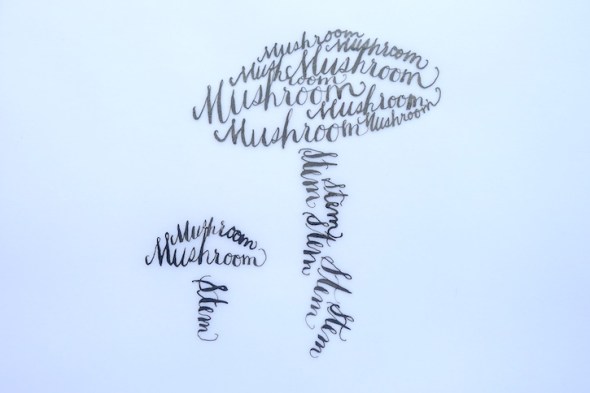 Mushroom
Mushroom
Mushroom
Mushroom
Mushroom
Mushroom
Mushroom
Mushroom
Stem
Stem
Stem
Stem
Stem
Mushroom
Mushroom
Stem